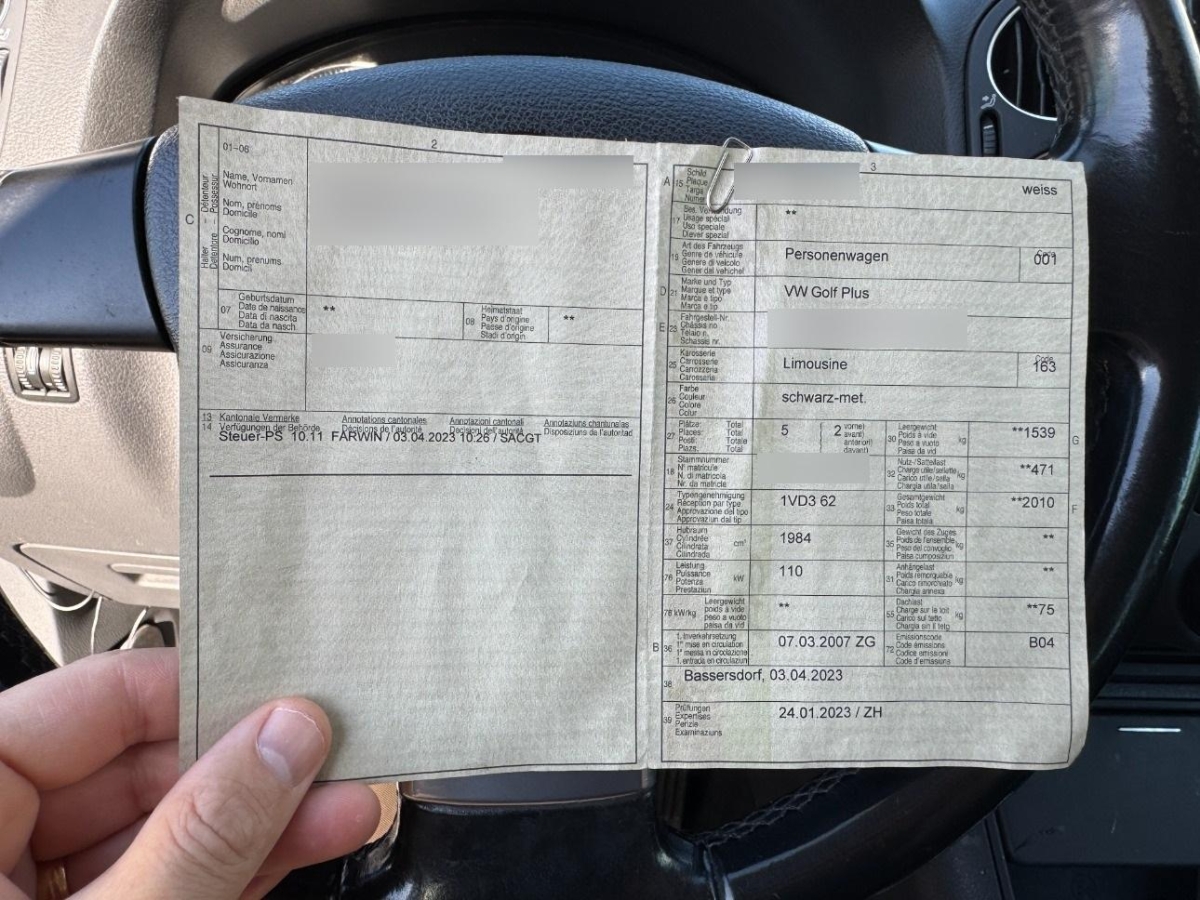 2
01–06
C
Halter – Détenteur
Detentore – Possessur
Name, Vornamen
Wohnort
Nom, prénoms
Domicile
Cognome, nomi
Domicilio
Num, prenums
Domicil
07
Geburtsdatum
Date de naissance
Data di nascita
Data da nasch.
**
08
Heimatstaat
Pays d'origine
Paese d'origine
Stadi d'origin
**
09
Versicherung
Assurance
Assicurazione
Assicuranza
13 Kantonale Vermerke Annotations cantonales Annotazioni cantonali Annotaziuns chantunalas
14 Verfügungen der Behörde Décisions de l'autorité Decisioni dell'autorità Disposiziuns da l'autoritad
Steuer-PS 10.11 FARWIN / 03.04.2023 10:26 / SACGT
3
A 15
Schild
Plaque
Targa
weiss
17
Bes. Verwendung
Usage spécial
Uso speciale
Diever spezial
**
19
Art des Fahrzeugs
Genre de véhicule
Genere di veicolo
Gener dal vehichel
Personenwagen
Code
001
D 21
Marke und Typ
Marque et type
Marca e tipo
Marca e tip
VW Golf Plus
E 23
Fahrgestell-Nr.
Châssis no
Telaio n.
Schassis nr.
25
Karosserie
Carrosserie
Carrozzeria
Carossaria
Limousine
Code
163
26
Farbe
Couleur
Colore
Colur
schwarz-met.
27
Plätze: Total
Places: Total
Posti: Totale
Plazs: Total
5
2
vorne)
avant)
anteriori)
davant)
30
Leergewicht
Poids à vide
Peso a vuoto
Paisa da vid
kg
**1539
G
18
Stammnummer
N° matricule
N. di matricola
Nr. da matricla
32
Nutz-/Sattellast
Charge utile/sellette
Carico utile/sella
Chargia utila/sella
kg
**471
24
Typengenehmigung
Réception par type
Approvazione del tipo
Approvaziun dal tip
1VD3 62
33
Gesamtgewicht
Poids total
Peso totale
Paisa totala
kg
**2010
F
37
Hubraum
Cylindrée
Cilindrata
Cilindrada
cm³
1984
35
Gewicht des Zuges
Poids de l'ensemble
Peso del convoglio
Paisa cumposiziun
kg
**
76
Leistung
Puissance
Potenza
Prestaziun
kW
110
31
Anhängelast
Poids remorquable
Carico rimorchiato
Chargia annexa
kg
**
78 kW/kg
Leergewicht
poids à vide
peso a vuoto
paisa da vid
**
55
Dachlast
Charge sur le toit
Carico sul tetto
Chargia sin il tetg
kg
**75
B 36
1. Inverkehrsetzung
1re mise en circulation
1a messa in circolazione
1. entrada en circulaziun
07.03.2007 ZG
72
Emissionscode
Code émissions
Codice emissioni
Code d'emissiuns
B04
38
Bassersdorf, 03.04.2023
39
Prüfungen
Expertises
Perizie
Examinaziuns
24.01.2023 / ZH